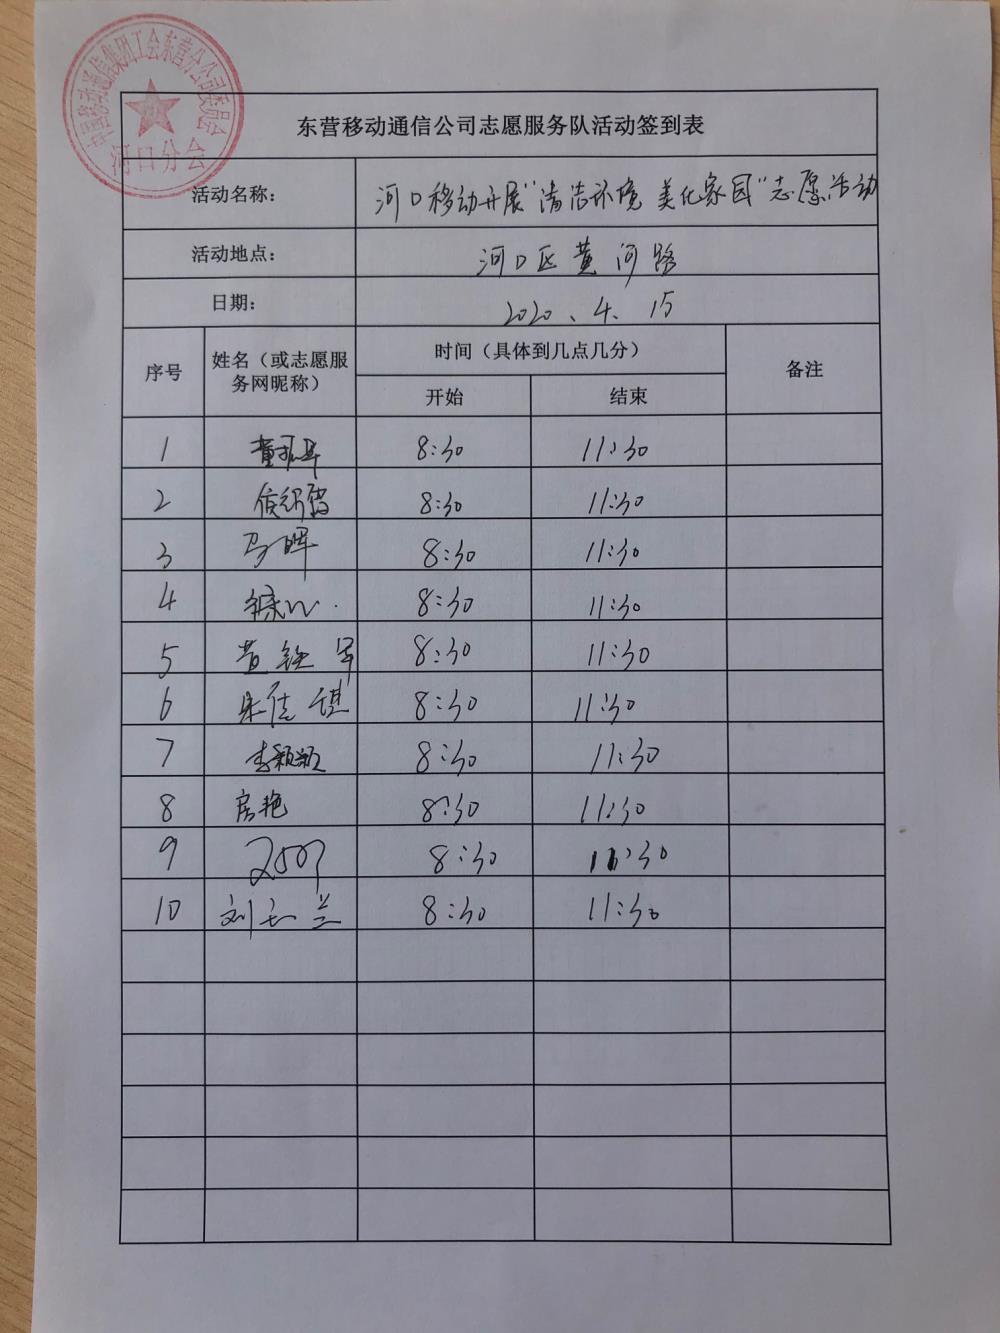 中国移动通信集团工会东营分公司委员会
河口分会
东营移动通信公司志愿服务队活动签到表
活动名称： 河口移动开展“清洁环境 美化家园”志愿活动
活动地点： 河口区黄河路
日期： 2020、4、15
序号 姓名（或志愿服务网昵称） 时间（具体到几点几分） 备注
开始 结束
1 8:30 11:30
2 8:30 11:30
3 马晖 8:30 11:30
4 8:30 11:30
5 8:30 11:30
6 8:30 11:30
7 李颖颖 8:30 11:30
8 房艳 8:30 11:30
9 8:30 11:30
10 刘玉兰 8:30 11:30